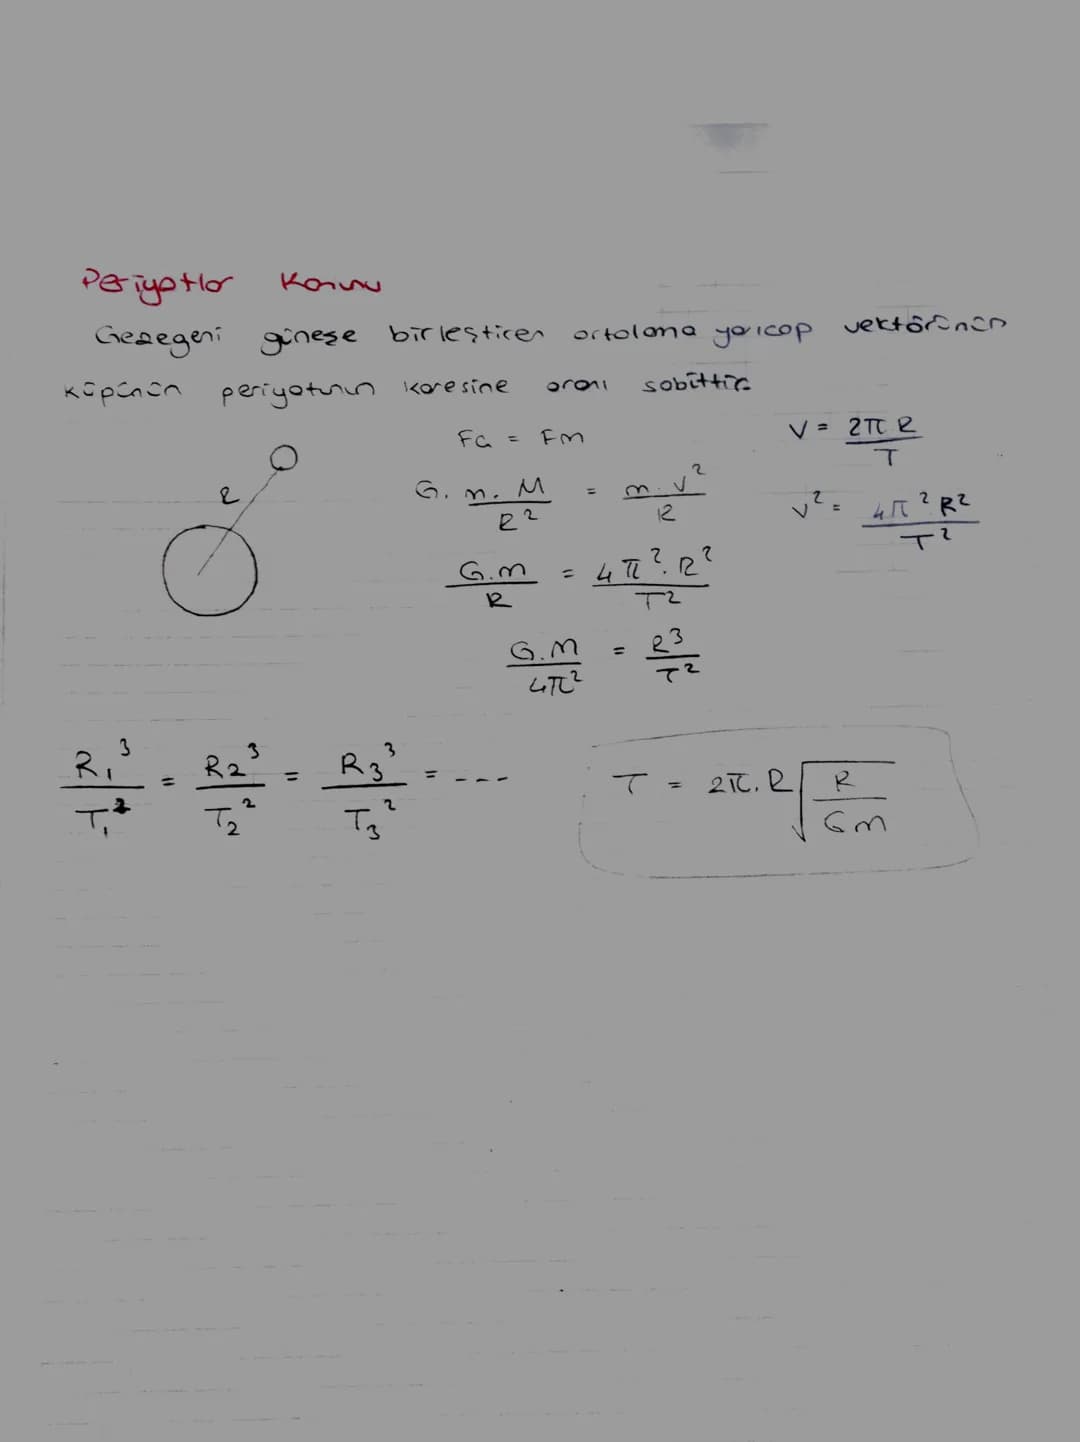 Periyotlar Kanunu
Gezegeni güneşe birleştiren ortalama yarıçap vektörünün
küpünün periyotunun karesine oranı sabittir.
FG = Fm
V = 2π R / T
R
G. m. M / R² = m. v² / R
v² = 4π² R² / T²
G.m / R = 4π². R² / T²
G.M / 4π² = R³ / T²
R₁³ / T₁² = R₂³ / T₂² = R₃³ / T₃² = ----
T = 2π. R √(R / Gm)